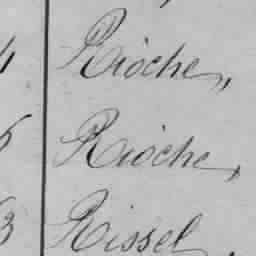 Rioche,,
Rioche,
Rissel